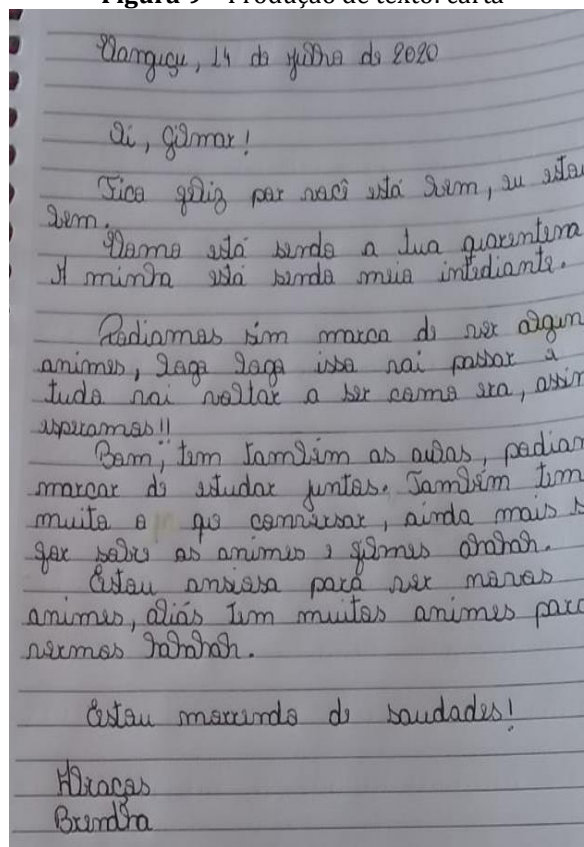 Figura 9 – Produção de texto: carta
Canguçu, 14 de julho de 2020
Oi, Gilmar!
Fico feliz por você está bem, eu estou
bem.
Como está sendo a tua quarentena
A minha está sendo meio intediante.
Podiamos sim marca de ver algun
animes, logo logo isso vai passar e
tudo vai voltar a ser como era, assim
esperamos!!
Bom, tem também as aulas, podian
marcar de estudar juntos. Também tem
muito o que conversar, ainda mais s
for sobre os animes e filmes ahahah.
Estou ansiosa para ver novos
animes, aliás tem muitos animes para
vermos hahahah.
Estou morrendo de saudades!
Abraços
Brendha